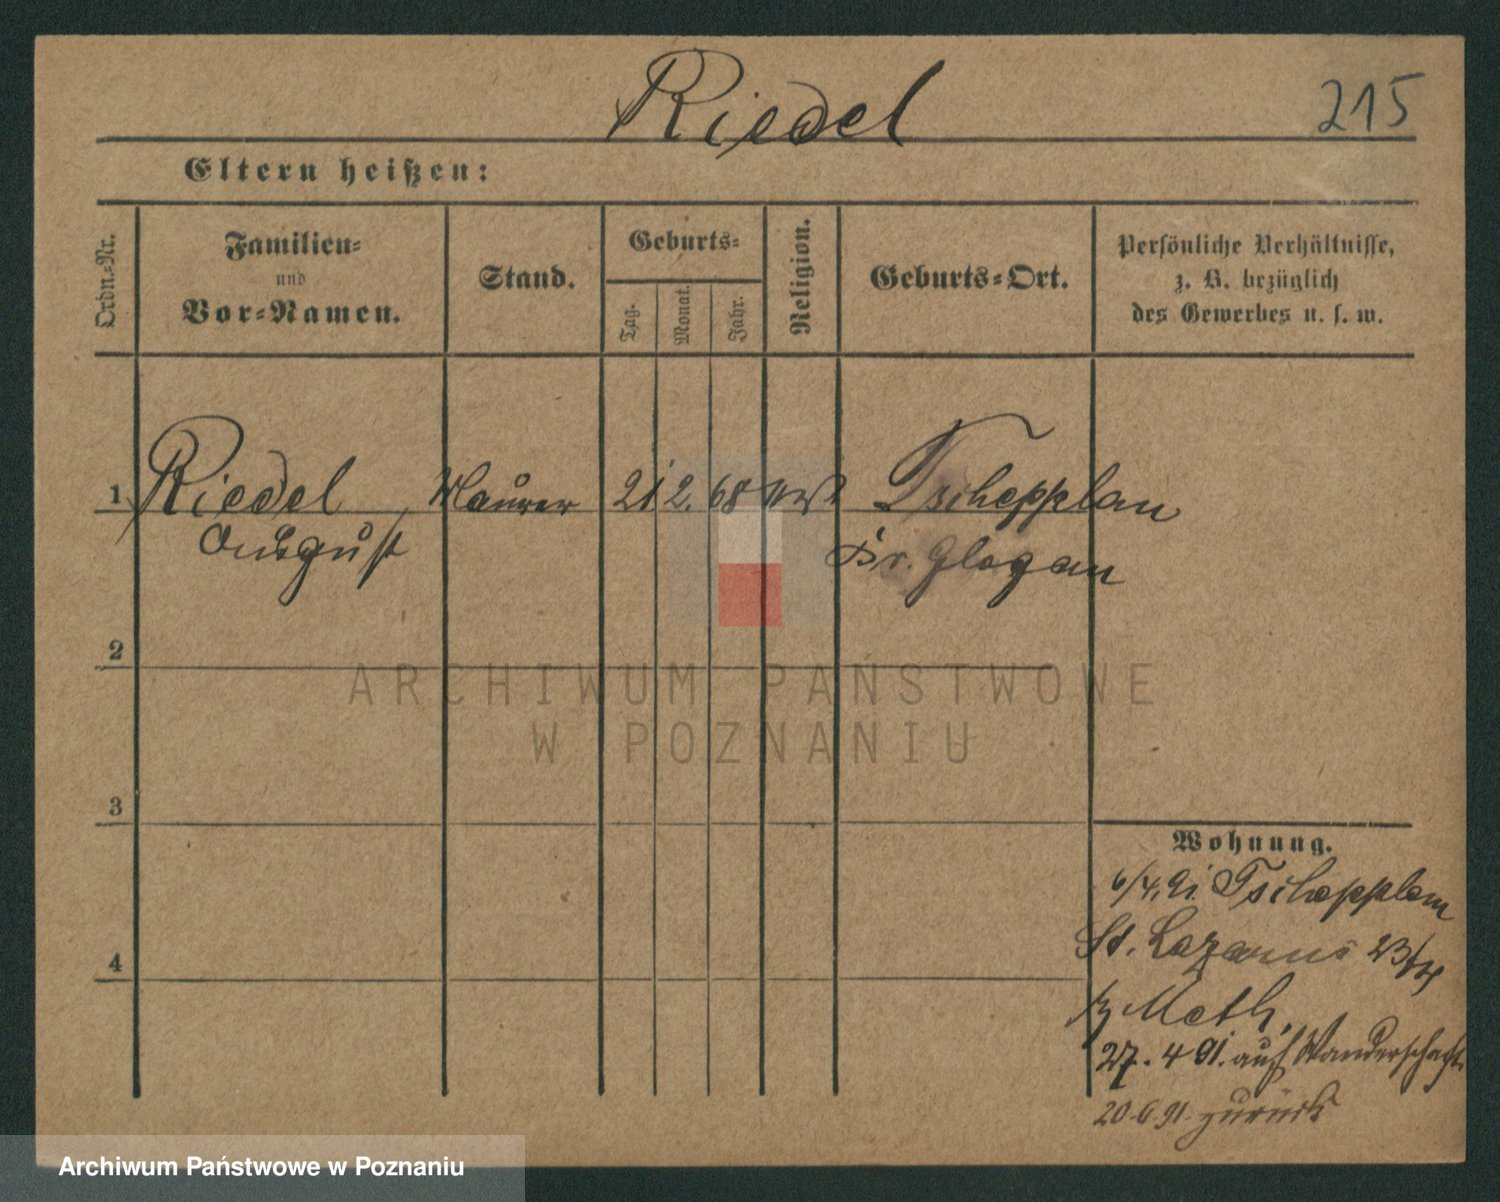 Riedel
215
Eltern heißen:
Ordn.-Nr.
Familien-
und
Vor-Namen.
Stand.
Geburts-
Tag.
Monat.
Jahr.
Religion.
Geburts-Ort.
Persönliche Verhältnisse,
z. B. bezüglich
des Gewerbes u. s. w.
1 Riedel Maurer 21 2. 68 Tschepplau
August Kr. Glogau
2
ARCHIWUM PAŃSTWOWE
W POZNANIU
3
Wohnung.
6/4. 91. Tschepplau
St. Lazarus 23
4
27. 4 91. auf Wanderschaft
20.6.91. zurück
Archiwum Państwowe w Poznaniu